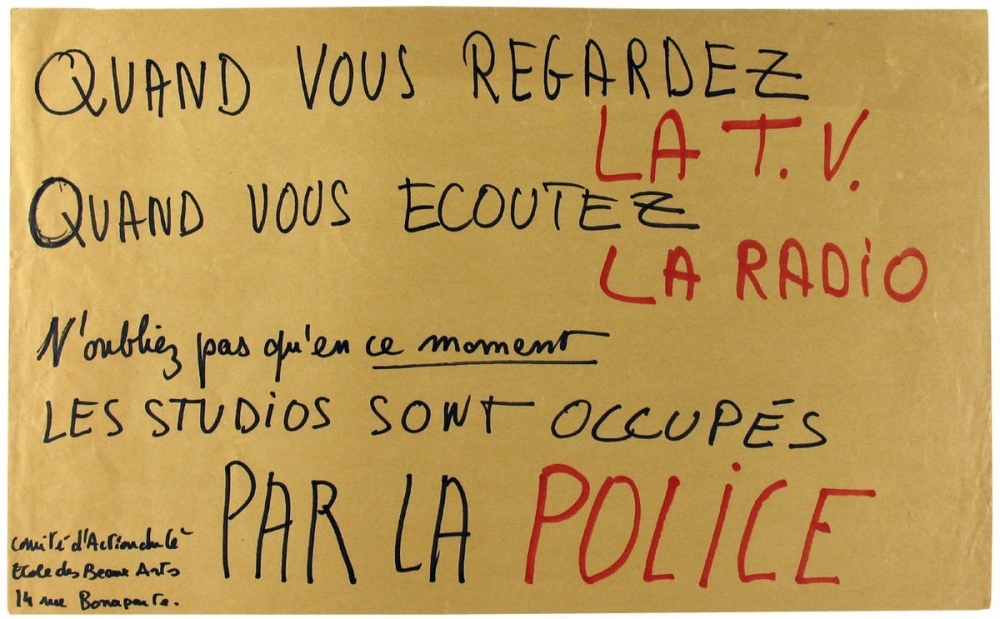 QUAND VOUS REGARDEZ
LA T.V.
QUAND VOUS ECOUTEZ
LA RADiO
N'oubliez pas qu'en ce moment
LES STUDIOS SONT OCCUPÉS
PAR LA POLiCE
Comité d'Action de l'
Ecole des Beaux Arts
14 rue Bonaparte.